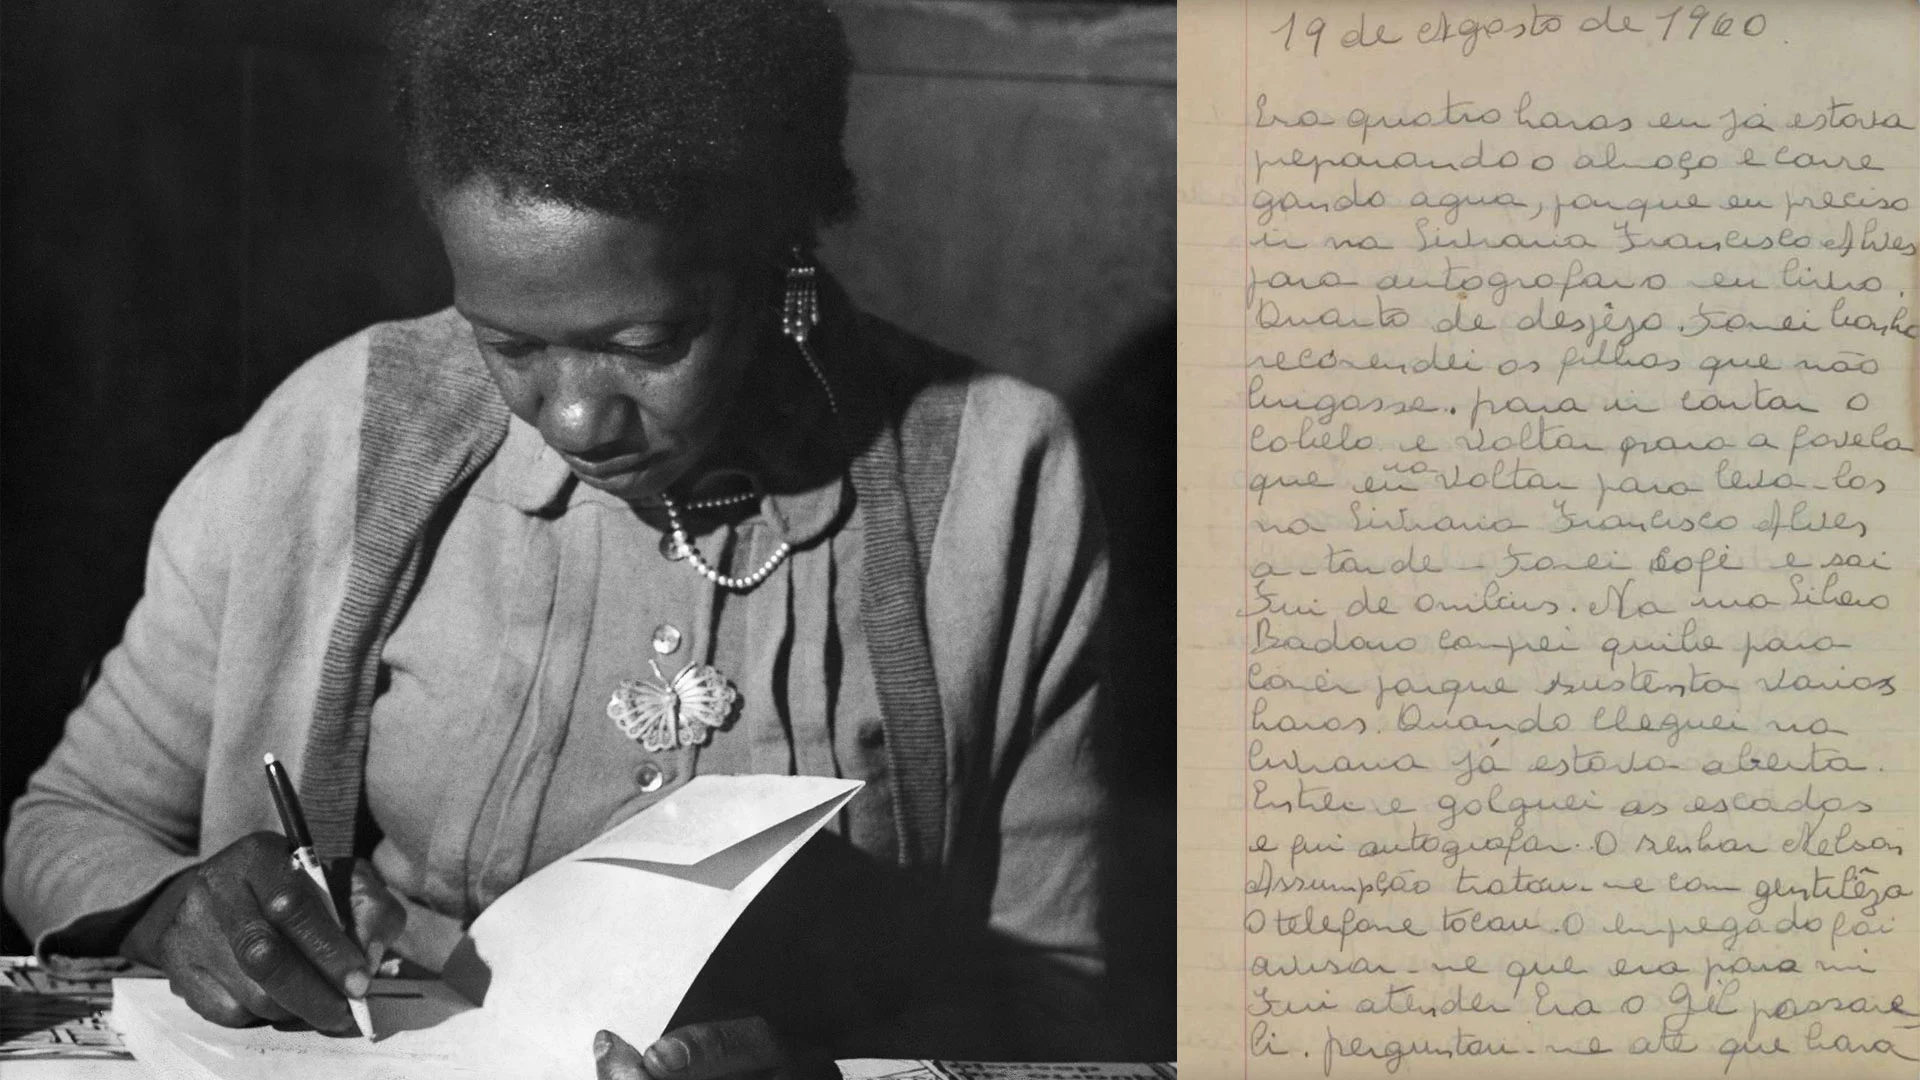 19 de Agosto de 1960.
Era quatro horas eu já estava
preparando o almoço e carre
gando agua, porque eu preciso
ir na Livraria Francisco Alves
para autografar o eu livro.
Quarto de desjêjo. Tomei banho
recomendei os filhos que não
brigasse. para ir cortar o
cabelo e voltar para a favela
que eu ia voltar para leva-los
na Livraria Francisco Alves
a-tarde- Tomei café e sai
Fui de onibus. Na rua Libero
Badaro comprei quibe para
comêr porque sustenta varias
horas. Quando cheguei na
livraria já estava aberta.
Entrei e galguei as escadas
e fui autografar. O senhor Nelson
Assumpção tratou-me com gentilêza
O telefone tocou. O empregado foi
avisar-me que era para mi
Fui atender Era o Gil passare
li. perguntou-me até que hora